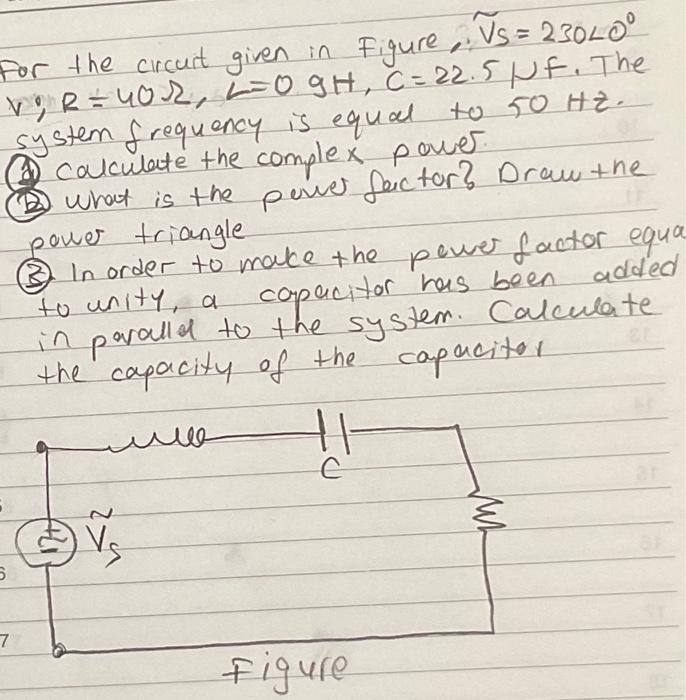 For the circuit given in Figure, Ṽs = 230∠0°
V, R = 40Ω, L=0 9H, C = 22.5 μF. The
system frequency is equal to 50 Hz.
① Calculate the complex power.
② What is the power factor? Draw the
power triangle
③ In order to make the power factor equa
to unity, a capacitor has been added
in parallel to the system. Calculate
the capacity of the capacitor
C
Ṽs
6
7
Figure